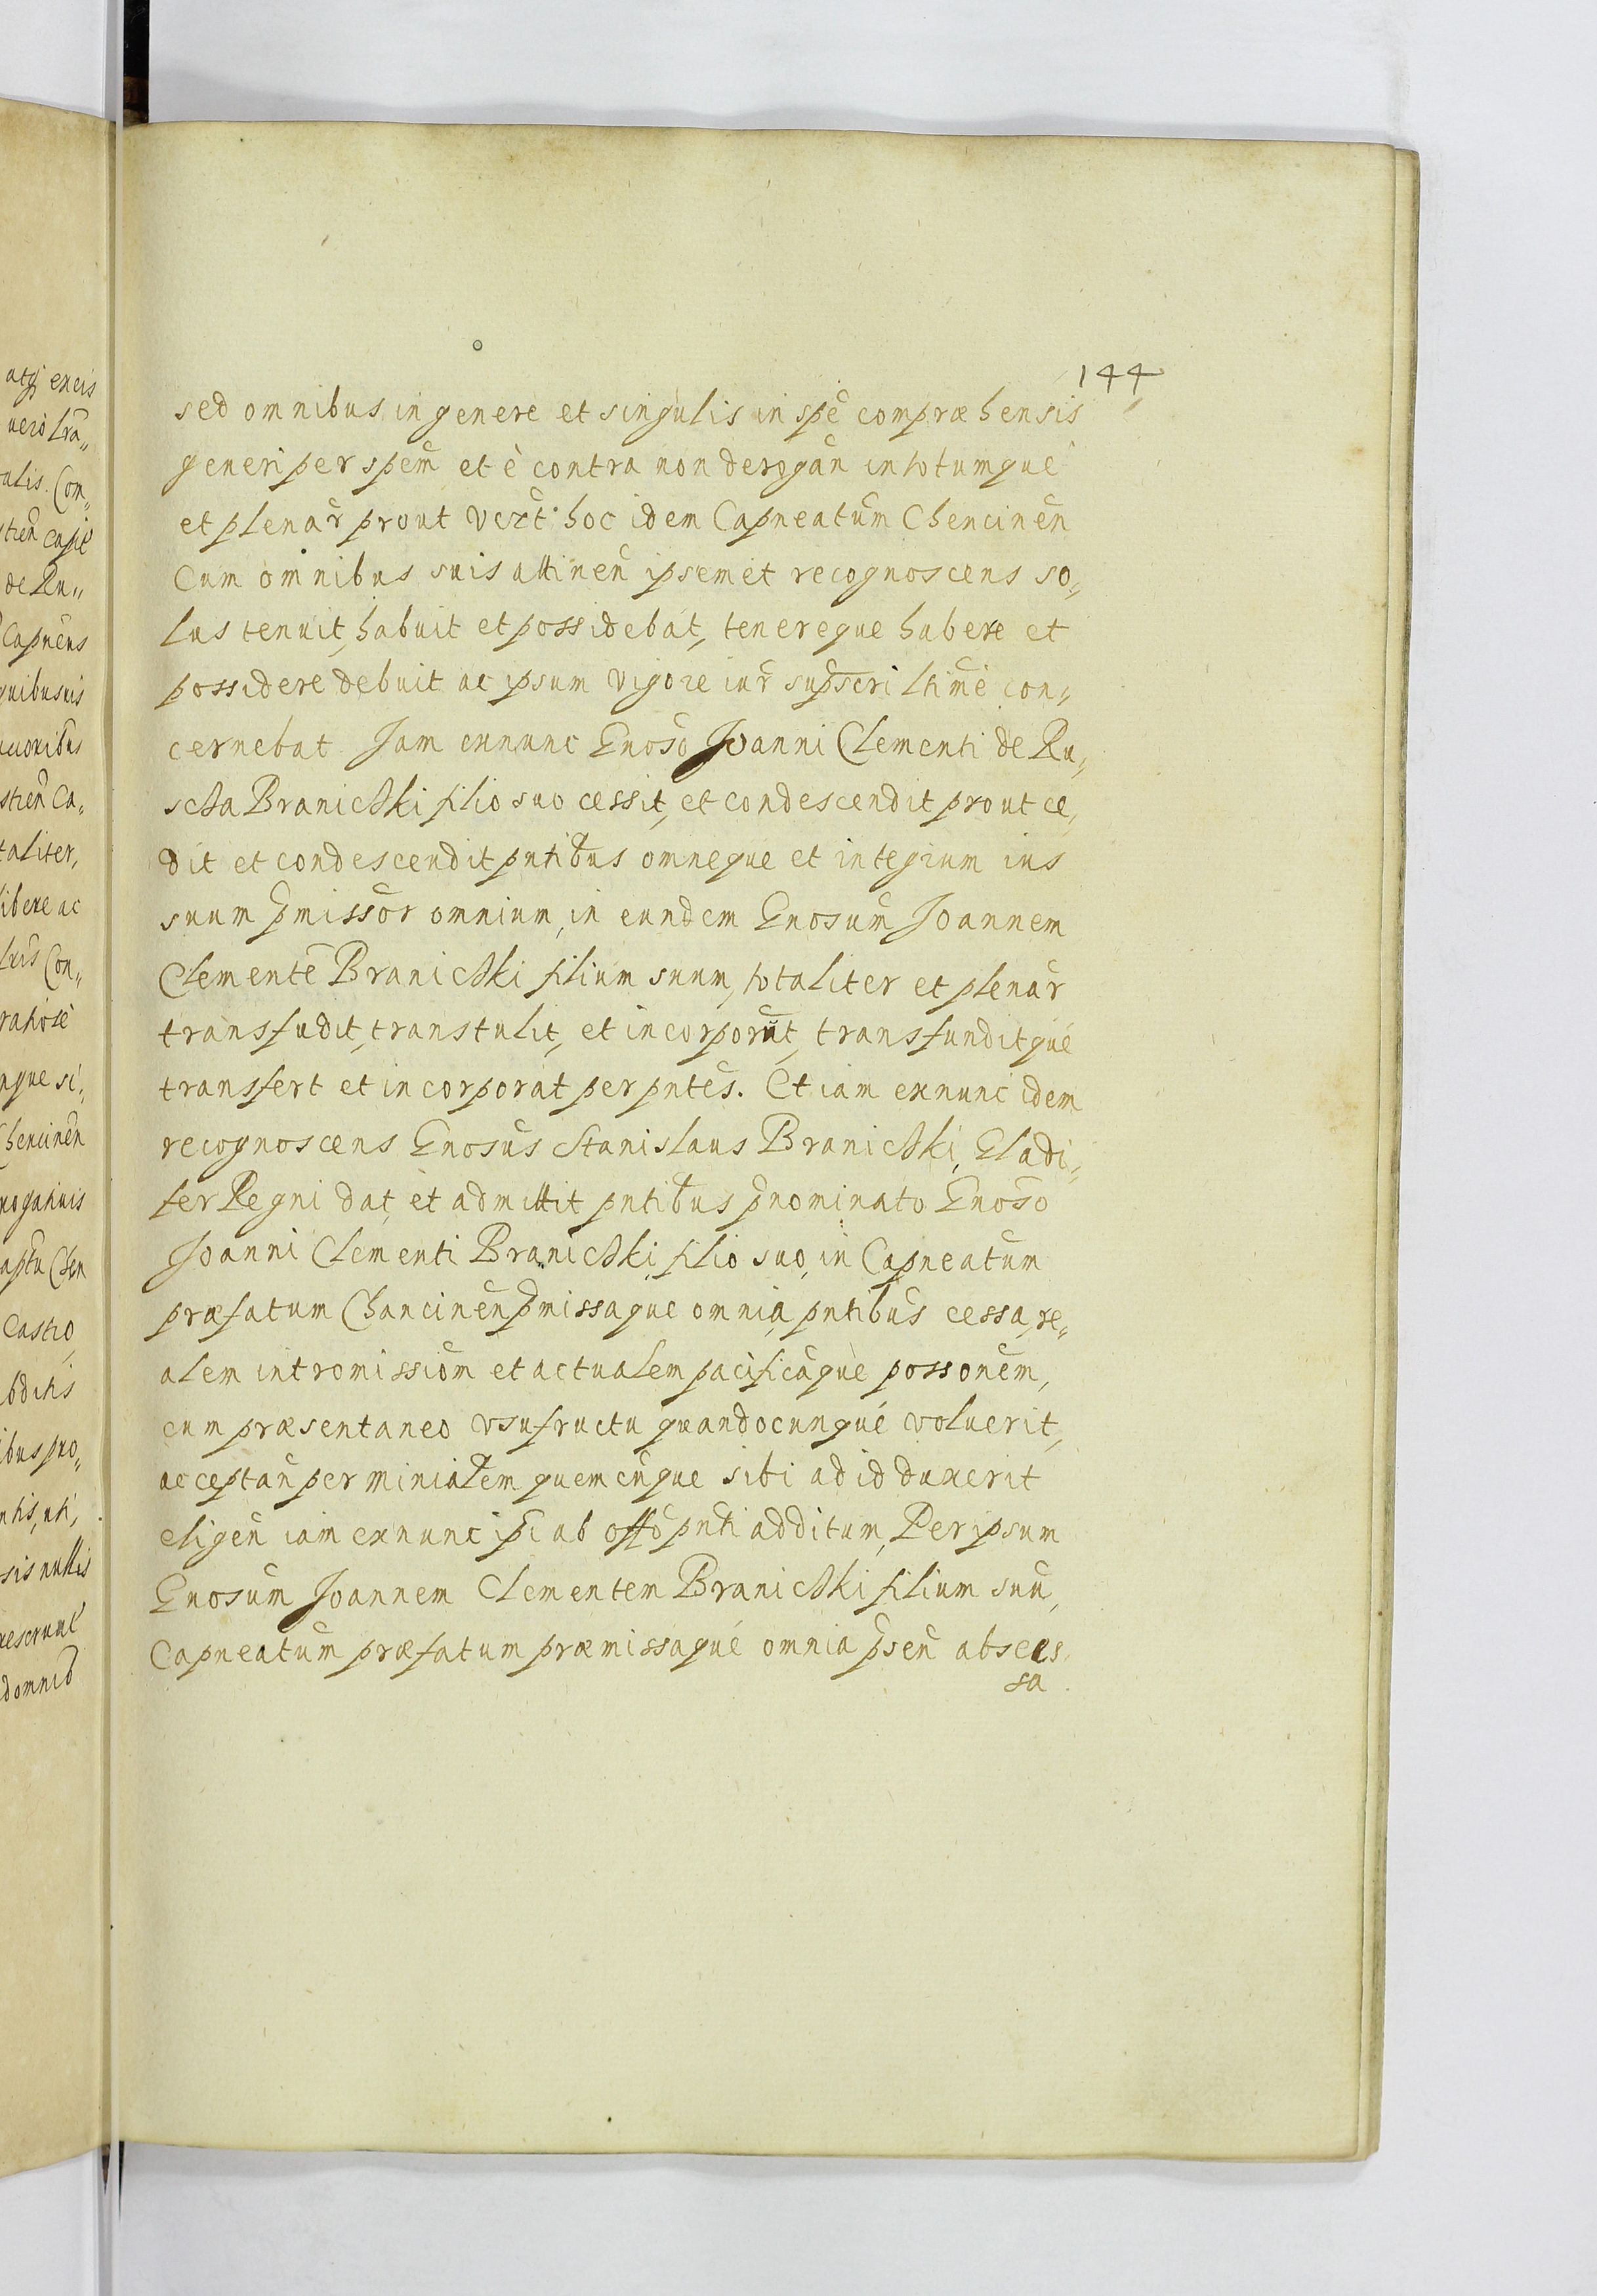 144
sed omnibus in genere et singulis in spē compræhensis
generi per spem̃ et è contra non derogan̄ in totumque
et plenar̄ prout vert̄ hoc idem Capneatum̄ Chencinen̄
Cum omnibus suis attinen̄ ipsemet recognoscens so„
lus tenuit, habuit et possidebat, tenereque habere et
possidere debuit ac ipsum vigore iur̄ supscri ltimē con„
cernebat Jam exnunc Gnoso Joanni Clementi de Ru„
scza Braniczki filio suo cessit, et condescendit prout ce„
dit et condescendit pntibus omneque et integrum ius
suum p̄missor̄ omnium, in eundem Gnosum̄ Joannem
Clementē Braniczki filium suum, totaliter et plenar̄
transfudit, transtulit, et incorporat, transfunditqué
transfert et incorporat per pntēs. Et iam exnunc idem
recognoscens Gnosūs Stanislaus Braniczki, Gladi„
fer Regni dat, et admittit pntibus p̄nominato Gnoso
Joanni Clementi Braniczki filio suo, in Capneatum
præfatum Chancinen̄ p̄missaque omnia pntibūs cessa, re„
alem intromissiom̄ et actualem pacificāquè possonem̄,
cum præsentaneo vsufructu quandocunqué voluerit,
acceptan̄ per miniatem quemcūque sibi ad id duxerit
eligen̄ iam exnunc ipi ab offo pnti additum, Per ipsum
Gnosum Joannem Clementem Braniczki filium suū,
Capneatum̄ præfatum præmissaqué omnia p̄sen̄ absces„
sa
atq̨ excis
vero Lrā„
alis. Com„
de Ru„
Capnens
quibusuis
stien̄ Ca„
taliter,
libere ac
Con„
nque si„
Chencinen̄
Castro,
ibus pro„
ntis, uti,
sis nullis